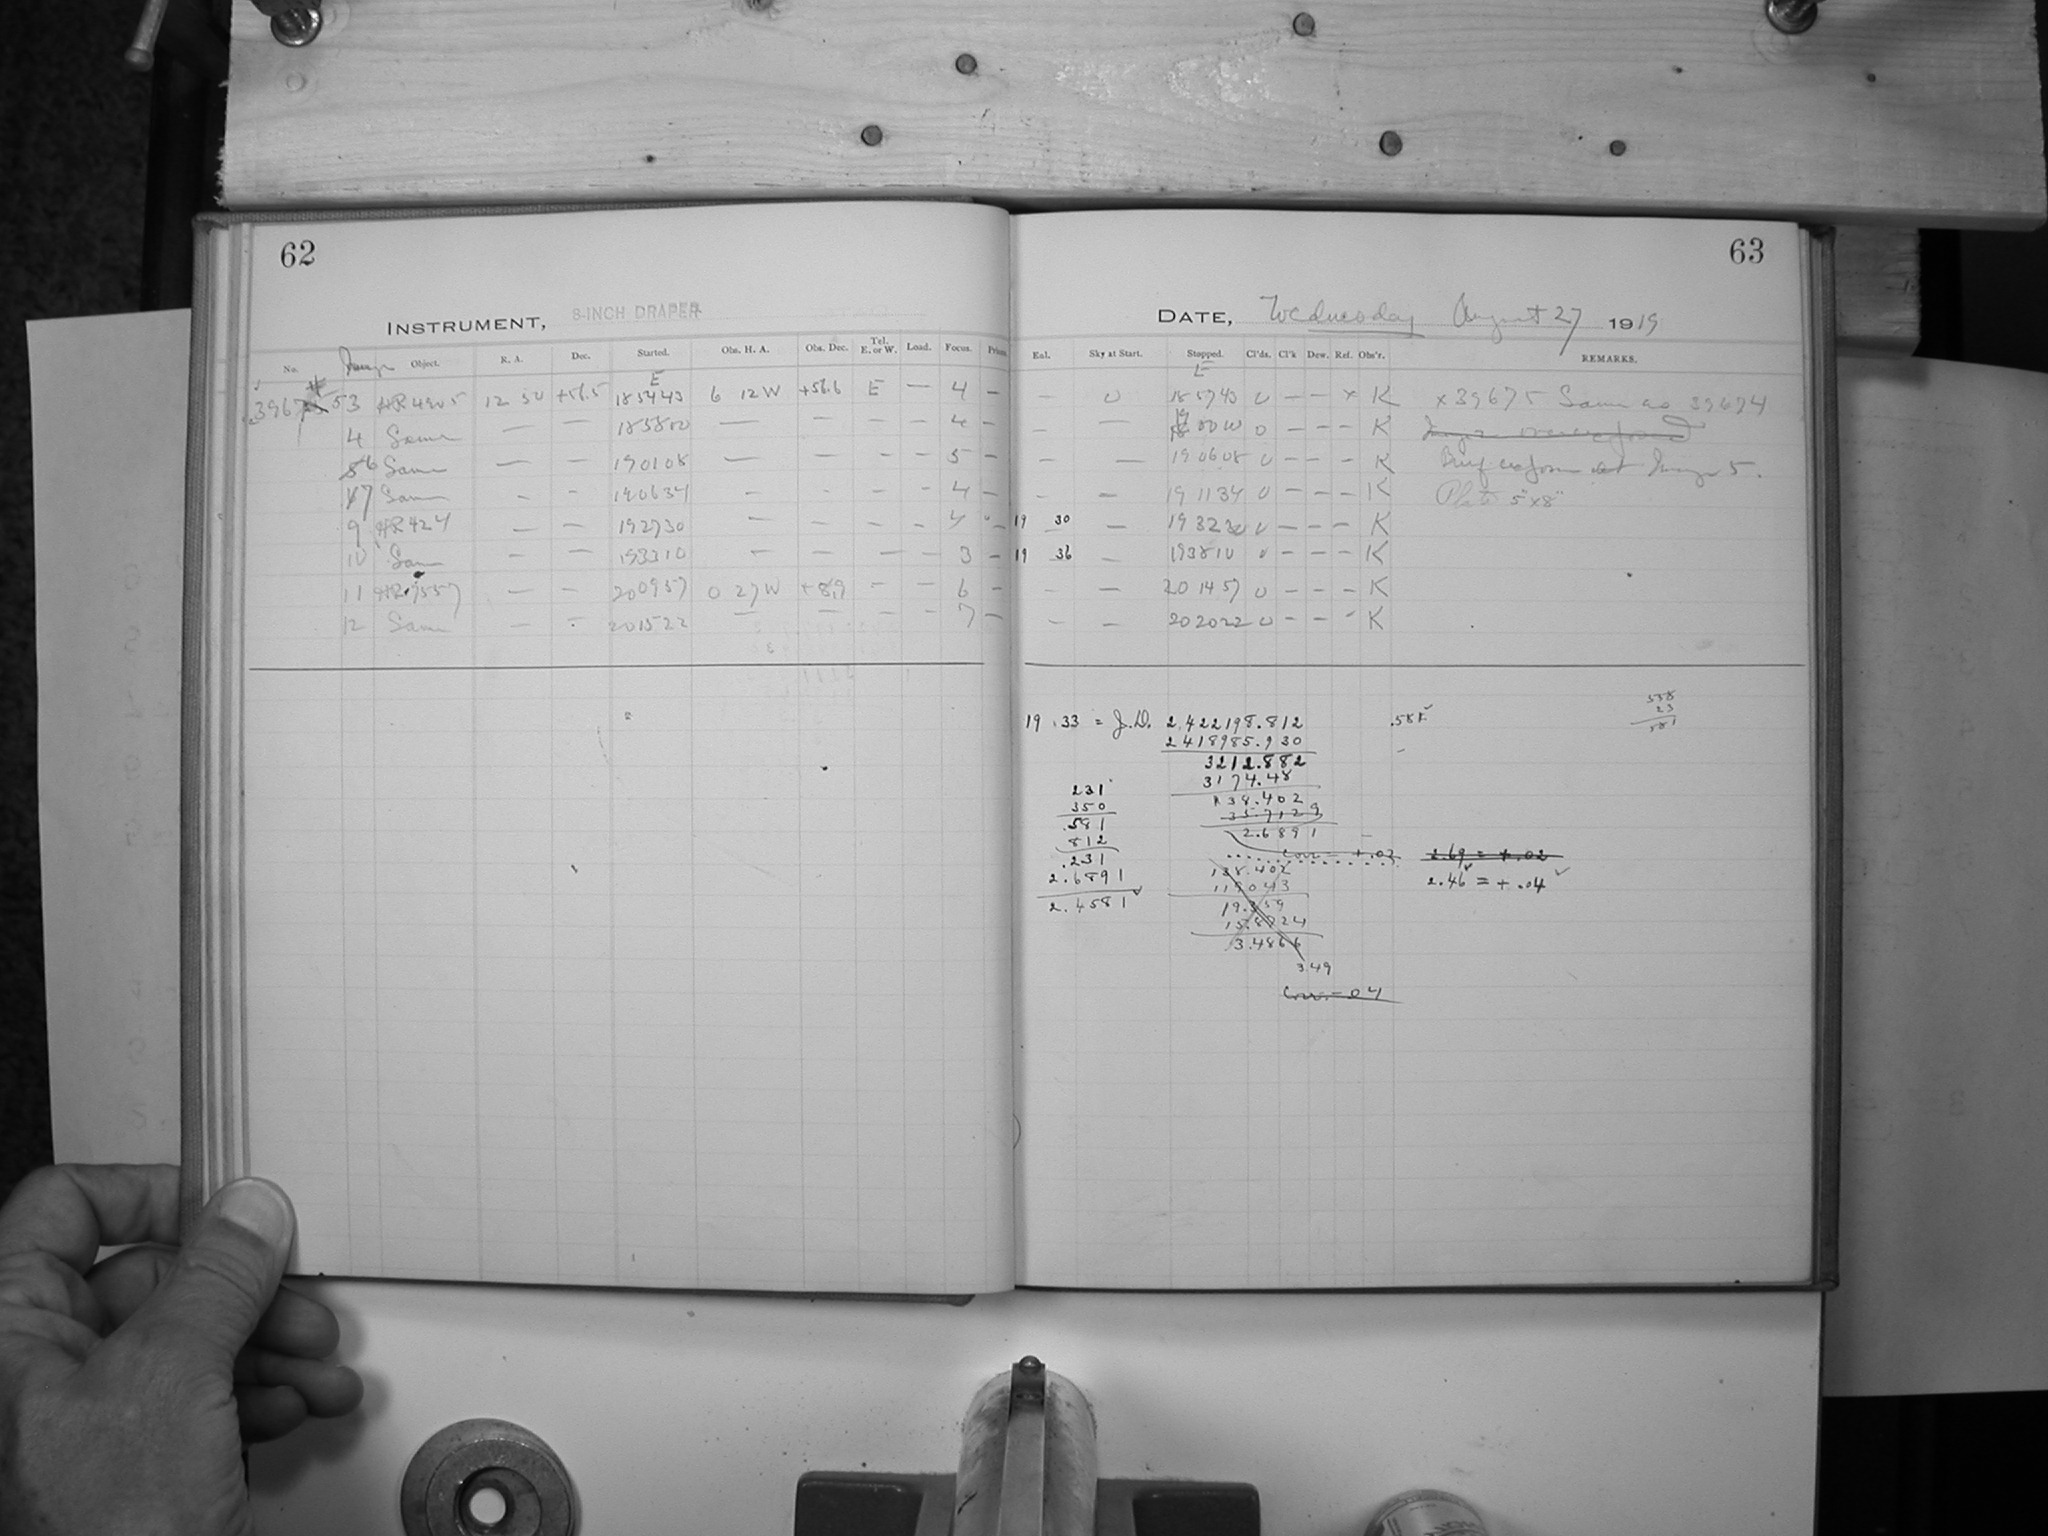 62
INSTRUMENT, 8-INCH DRAPER
No. Image Object. R. A. Dec. Started. Obs. H. A. Obs. Dec. Tel. E. or W. Load. Focus. Prism
E
3967 53 HR 4905 12 50 +56.5 185443 6 12 W +56.6 E — 4 —
4 Same — — 185800 — — — — 4 —
6 Same — — 190108 — — — — 5 —
7 Same - - 190634 - - - - 4 -
9 HR 424 — — 192730 — — — — 4 —
10 Same — — 193310 — — — — 3 —
11 HR 7557 — — 200957 0 27 W +8.9 - - 6 -
12 Same — — 201522 — — — — 7 —
63
DATE, Wednesday August 27 1919
Eal. Sky at Start. Stopped. Cl'ds. Cl'k Dew. Ref. Obs'r. REMARKS.
E
— 0 185743 0 — — x K x 39675 Same as 39674
— — 00 10 0 — — — K
— — 190608 0 — — — K at Image 5.
— — 191134 0 — — — K Plate 5"x8"
19 30 — 193230 0 — — — K
19 36 — 193810 0 — — — K
- - 201457 0 - - - K
- - 202022 0 - - - K
19.33 = J.D. 2,422198.812
2418985.930
3212.882
3174.48
38.402
35.7129
2.6891
Corr = +.03
138.402
119.043
19.359
15.8724
3.4866
3.49
Corr. -.04
231
350
.581
812
.231
2.6891
2.4581
.581
2.69 = +.02
2.46 = +.04
558
23
581